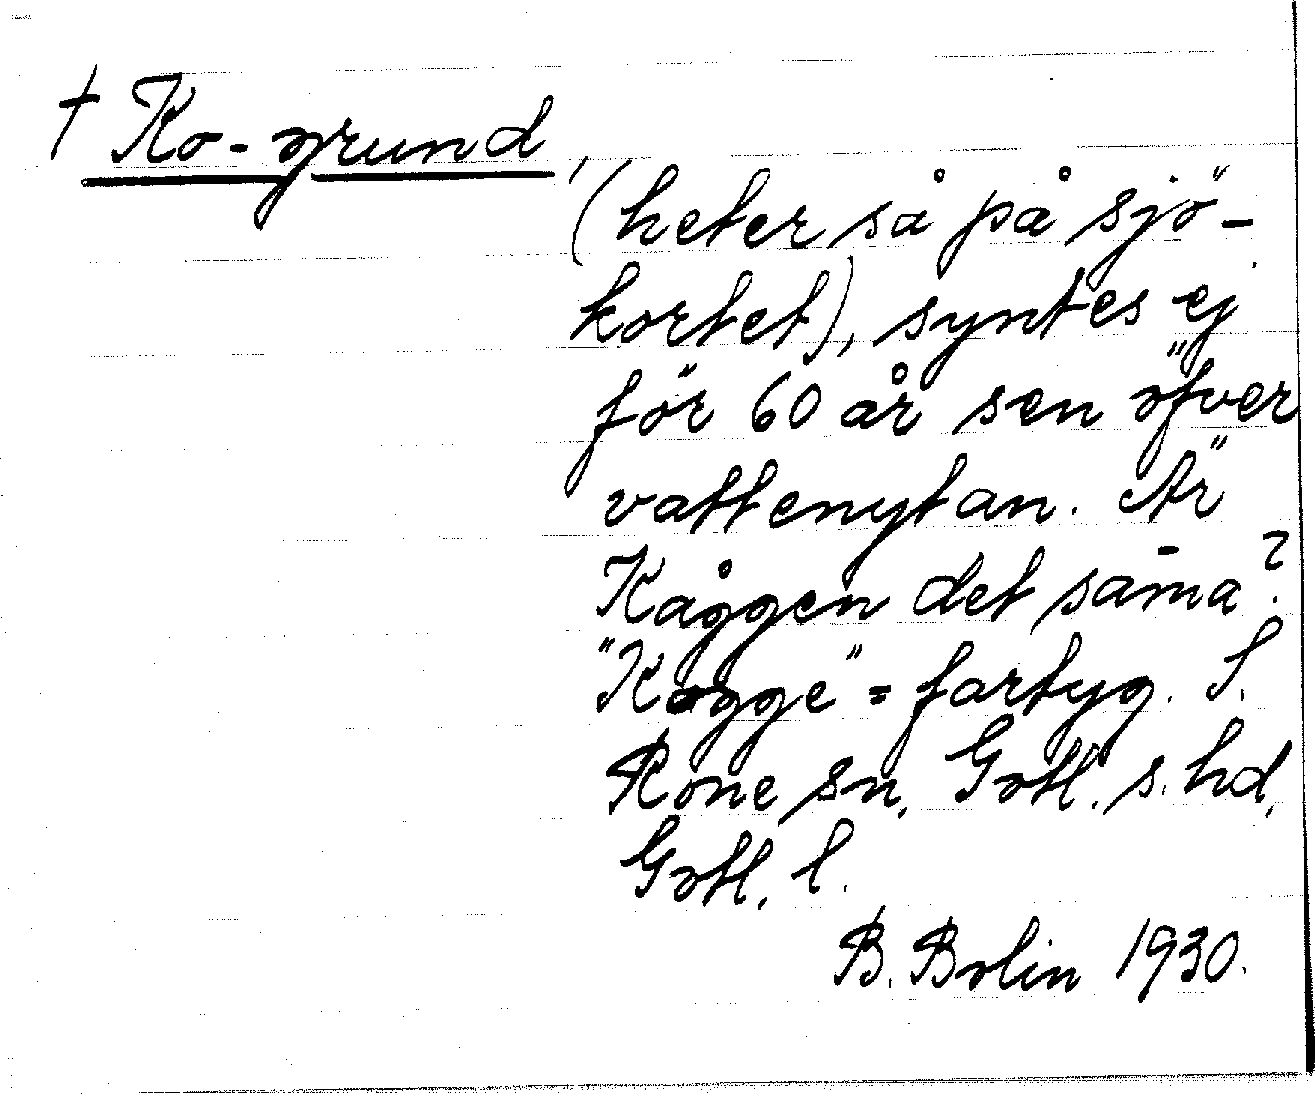 † Ko-grund,
(heter så på sjö-
kortet), syntes ej
för 60 år sen öfver
vattenytan. Är
Kåggen det sam̄a?
"Kogge" = fartyg. S.
Rone sn, Gotl. s. hd,
Gotl. l.
B. Bolin 1930.